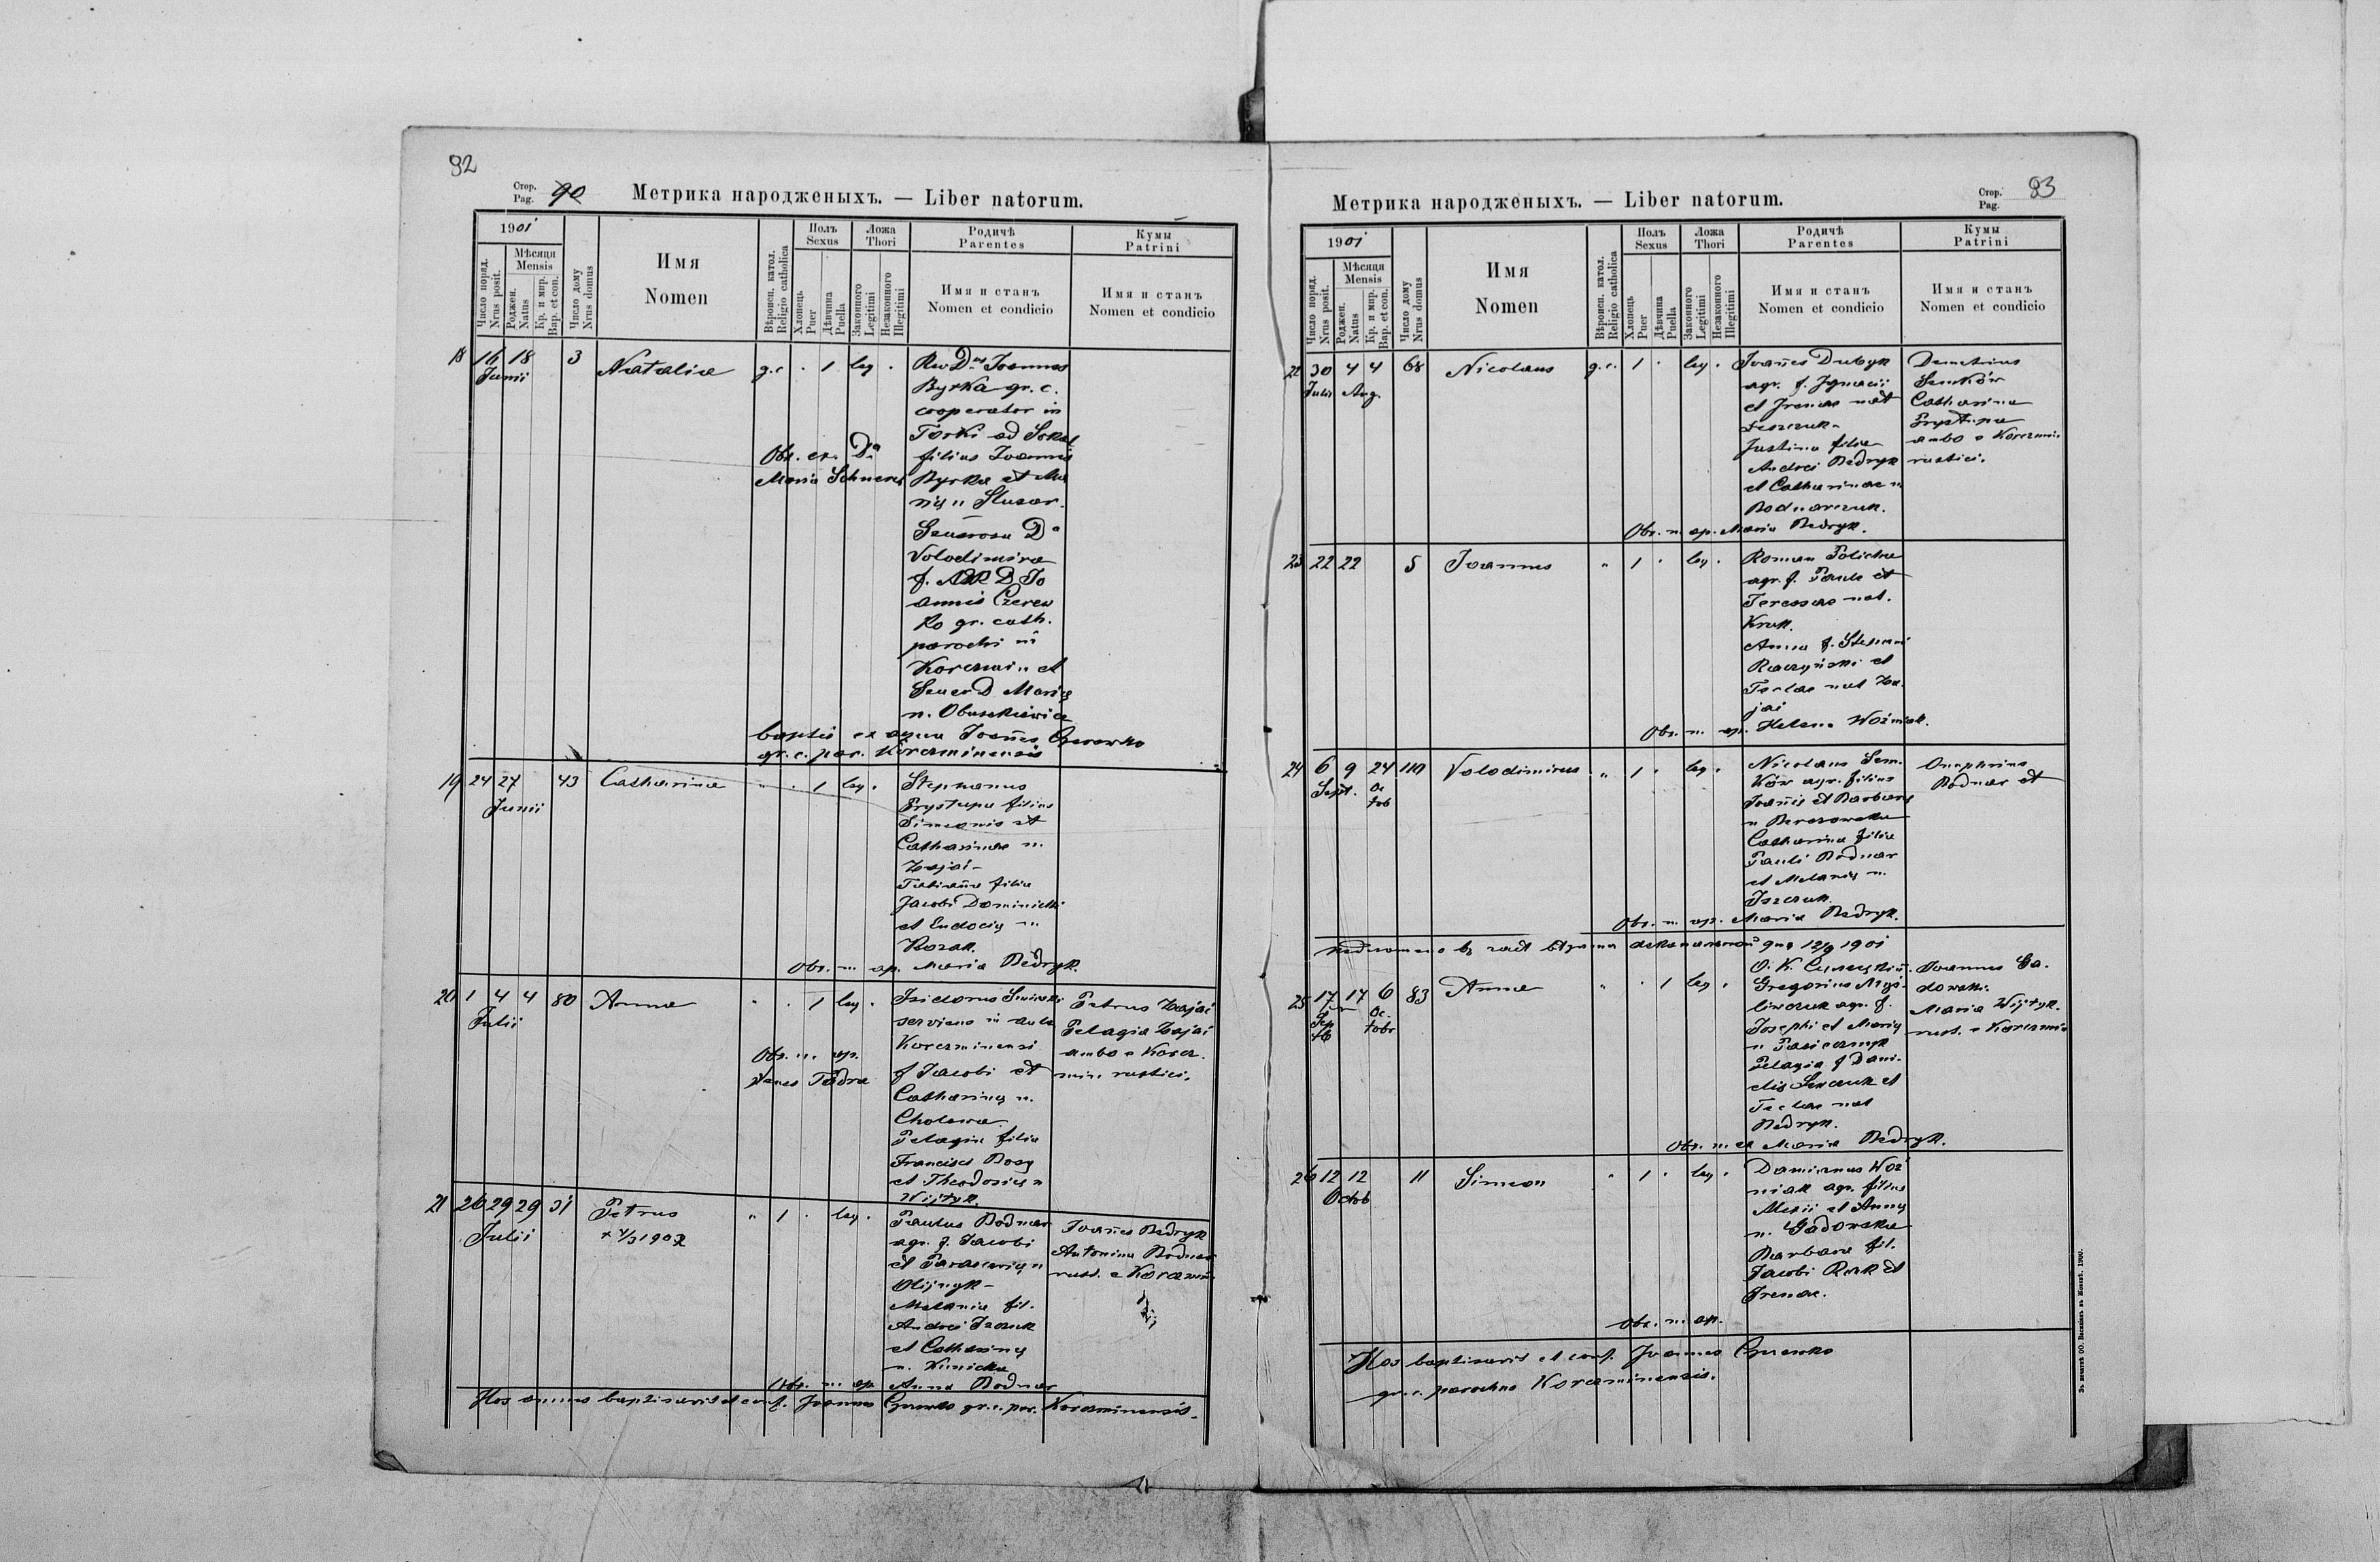 92
Стор.
Pag. 90
Метрика народженыхъ. — Liber natorum.
1901
Число поряд.
Nrus posit.
Мѣсяця
Mensis
Роджен.
Natus
Кр. и мир.
Bap. et con.
Число дому
Nrus domus
Имя
Nomen
Вѣроисп. катол.
Religio catholica
Полъ
Sexus
Хлопець
Puer
Дѣвчина
Puella
Ложа
Thori
Законного
Legitimi
Незаконного
Illegitimi
Родичѣ
Parentes
Имя и станъ
Nomen et condicio
Кумы
Patrini
Имя и станъ
Nomen et condicio
18 16 18 3 Natalia g.c. . 1 leg .
Junii
Rev Dnus Joannes
Byrka gr. c.
cooperator in
Torki ad Sokal
filius Joannis
Byrka et Ma
rię n Slusar.
Volodimira
f. ADR D Jo
annis Czerew
ko gr. cath.
parochi in
Korczmin et
D Marię
Obs. ex. Da
Maria
baptis ex aqua Joannes Czerewko
gr. c. par. Korczminensis
19 24 27 43 Catharina " . 1 leg .
Junii
Stephanus
Prystupa filius
Simeonis et
Catharinae n.
Zajai -
Tatianna filia
Jacobi Dominicki
et Eudocię n.
Kozak.
Obs. n. ap. Maria Bedryk.
20 1 4 4 80 Anna " . 1 leg .
Julii
Isidorus
serviens in aula
Korczminensi
f Jacobi et
Catharinę n.
Cholewa
Pelagia filia
Francisci
et Theodosię n
Wijtyk.
Petrus Zajai
Pelagia Zajai
ambo e Korcz.
min. rustici.
Obs. n. ap.
21 26 29 29 31 Petrus " 1 . leg .
Julii + 4/3 1902
Paulus Bodnar
agr. f. Jacobi
et Parascevię n
Olijnyk -
Melania fil.
Andrei
et Catharinę
n. Kunicka
Joannes Bedryk
Antonina Bodnar
rust. e Korczmin.
Obs. n. ap Anna Bodnar
Hos omnes baptisavit et conf. Joannes Czerewko gr. c. par. Korczminensis.
Метрика народженыхъ. — Liber natorum.
Стор.
Pag.
93
1901
Число поряд.
Nrus posit.
Мѣсяця
Mensis
Роджен.
Natus
Кр. и мир.
Bap. et con.
Число дому
Nrus domus
Имя
Nomen
Вѣроисп. катол.
Religio catholica
Полъ
Sexus
Хлопець
Puer
Дѣвчина
Puella
Ложа
Thori
Законного
Legitimi
Незаконного
Illegitimi
Родичѣ
Parentes
Имя и станъ
Nomen et condicio
Кумы
Patrini
Имя и станъ
Nomen et condicio
22 30 4 4 68 Nicolaus g.c. 1 . leg .
Julii Aug.
Joannes Dubyk
agr. f. Ignacii
et Irenae nat
Justina filia
Andrei Bedryk
et Catharinae n
Bodnarczuk.
Demetrius
Semków
Catharina
Prystupa
ambo e Korczmin.
rustici.
Obs. n. ap. Maria Bedryk.
23 22 22 5 Joannes " 1 . leg .
Roman Policha
agr. f. Pauli et
Teressae nat.
Kruk.
Anna f. Stephani
Raczyński et
Teclae nat Za.
jai
Obs. n. ap. Helena Woźniak.
24 6 9 24 110 Volodimirus " 1 . leg .
Sept. Oc
tob
Nicolaus Sem.
ków agr. filius
Joannis et Barbarę
n Berezowska
Catharina filia
Pauli Bodnar
et Melanię n.
Iszczuk.
Onuphrius
Bodnar et
Obs. n. ap. Maria Bedryk.
дня 12/9 1901
25 17 17 6 83 Anna " . 1 leg .
Sep
tb
Oc.
tobr
Gregorius Myś-
liwczuk agr. f.
Josephi et Marię
n Pasicznyk
Pelagia f Dani-
elis Senczuk et
Teclae nat
Bedryk.
Joannes Ga.
dowski.
Maria Wijtyk.
rust. e Korczmin
Obs. n. ex Maria Bedryk.
26 12 12 11 Simeon " 1 . leg .
Octob
Damianus Woź
niak agr. filius
Alexii et Annę
n. Gadowska
Barbara fil.
Jacobi Kruk et
Irenae.
Obs. n. ap.
Hos baptisavit et conf. Joannes Czerewko
gr. c. parochus Korczminensis.
Зъ печатнѣ ОО. Василіянъ въ Жовквѣ. 1900.